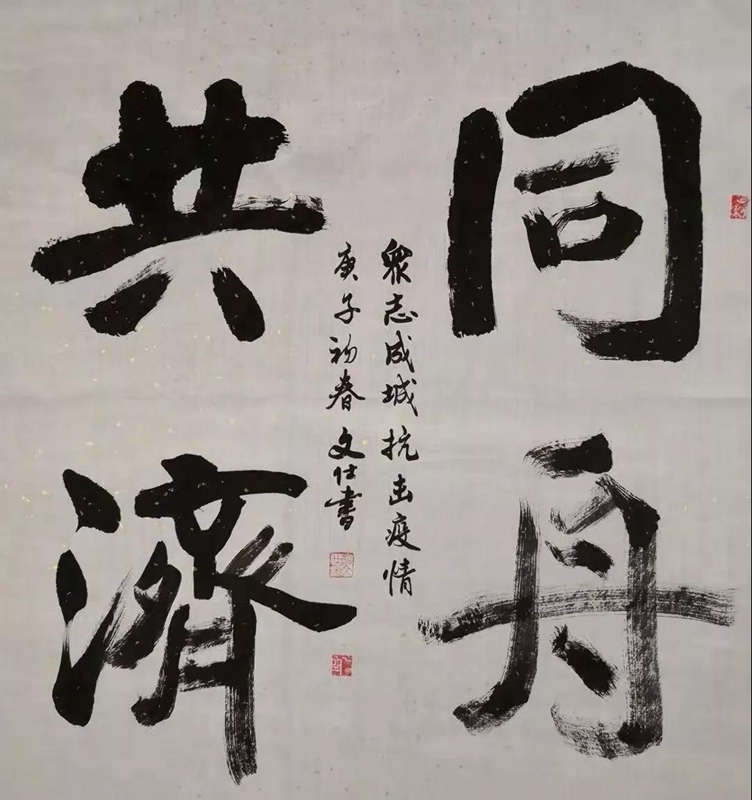 同舟
共濟
眾志成城抗击疫情
庚子初春文仕書